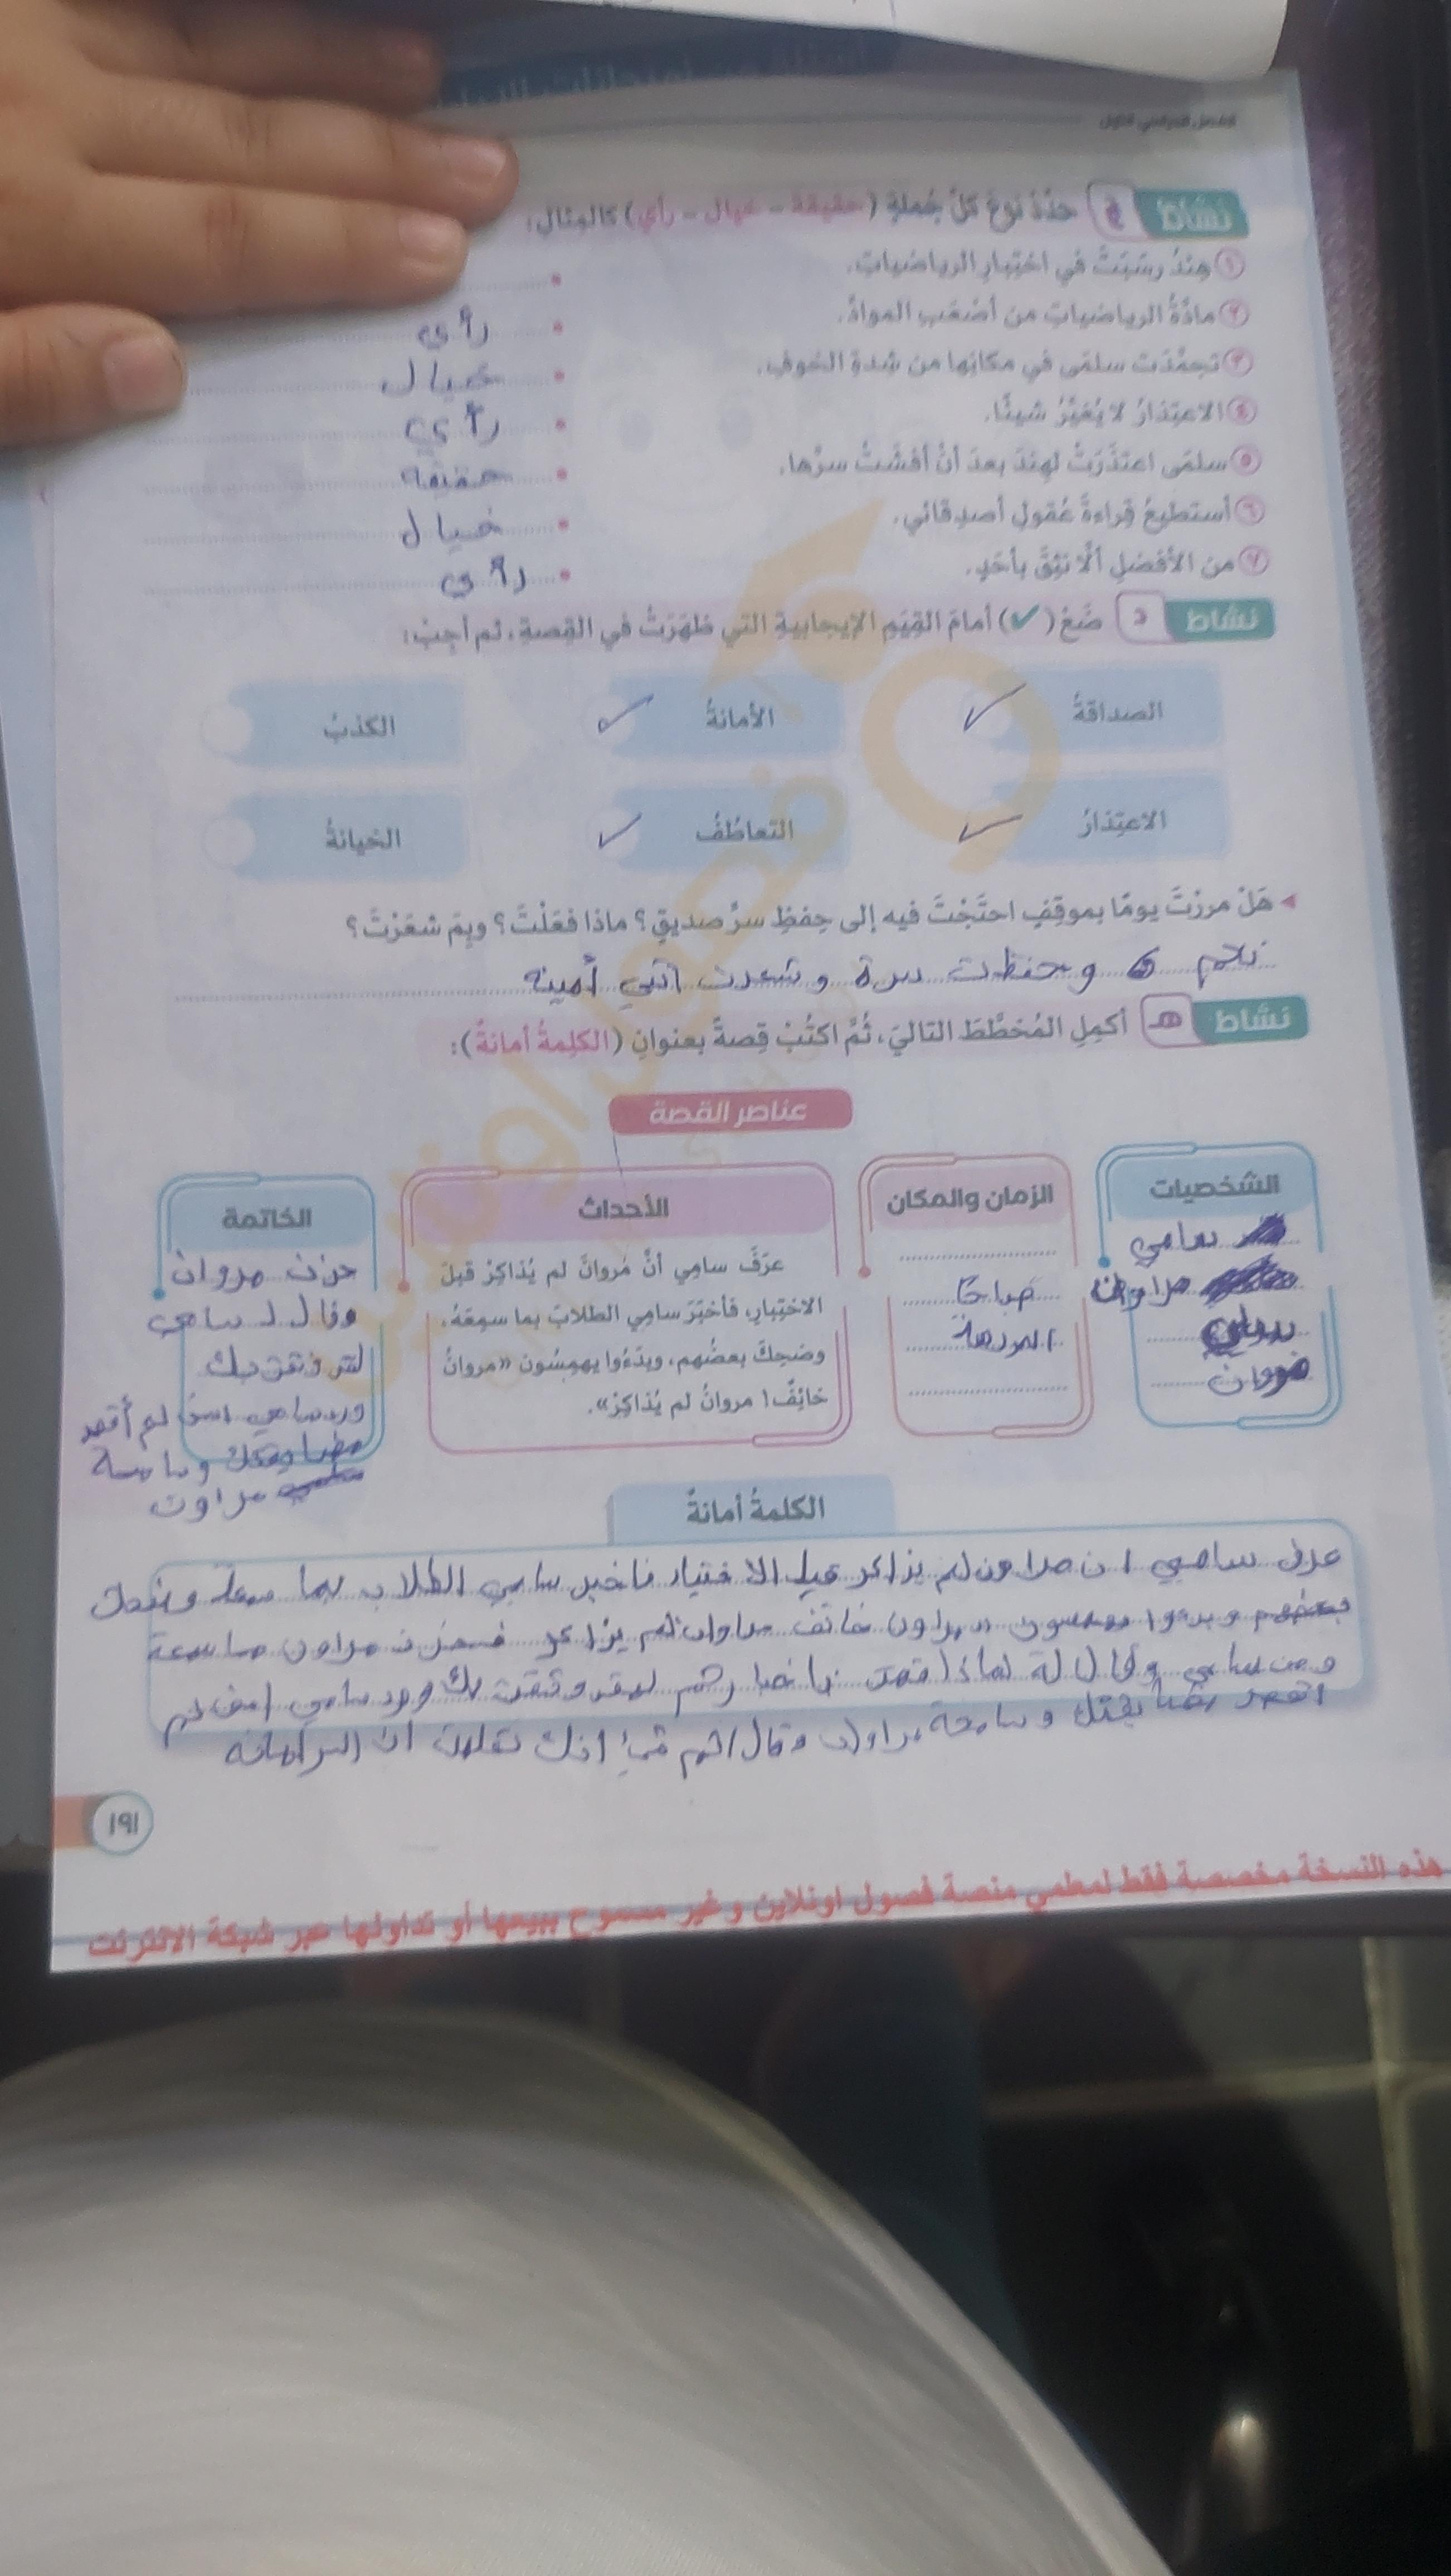 الفصل الدراسي الأول
نشاط ج حدِّدْ نوعَ كلِّ جُملةٍ (حقيقة – خيال – رأي) كالمِثالِ:
١ هِندُ رسَبَتْ في اختِبارِ الرياضياتِ.
٢ مادَّةُ الرياضياتِ من أصْعَبِ الموادِّ. رأي
٣ تجمَّدَت سلمَى في مكانِها من شِدةِ الخوفِ. خيال
٤ الاعتِذارُ لا يُغيِّرُ شيئًا. رأي
٥ سلمَى اعتذَرَتْ لهِندَ بعدَ أنْ أفشَتْ سرَّها. حقيقه
٦ أستطيعُ قِراءةَ عُقولِ أصدِقائي. خيال
٧ من الأفضلِ ألَّا نَثِقَ بأحَدٍ. رأي
نشاط د ضَعْ (✓) أمامَ القِيَمِ الإيجابيةِ التي ظهَرَتْ في القِصةِ، ثم أجِبْ:
الصداقةُ ✓ الأمانةُ ✓ الكذبُ
الاعتِذارُ ✓ التعاطُفُ ✓ الخيانةُ
هَلْ مررْتَ يومًا بموقِفٍ احتَجْتَ فيه إلى حِفظِ سرِّ صديقٍ؟ ماذا فعَلْتَ؟ وبِمَ شعَرْتَ؟
وحفظت سرة وشعرت انني أمينه
نشاط هـ أكمِلِ المُخطَّطَ التاليَ، ثُمَّ اكتُبْ قِصةً بعنوانِ (الكلِمةُ أمانةٌ):
عناصر القصة
الشخصيات
سامي
مراوان
الزمان والمكان
صباحًا
المدرسة
الأحداث
عرَفَ سامِي أنَّ مَروانَ لم يُذاكِرْ قبلَ
الاختِبارِ، فأخبَرَ سامِي الطلابَ بما سمِعَهُ،
وضحِكَ بعضُهم، وبدَءُوا يهمِسُون «مروانُ
خائِفٌ! مروانُ لم يُذاكِرْ».
الخاتمة
حزن مروان
وقال لسامي
لقد وثقت بك
ورد سامي اسف لم أقصد
مضايقتك وسامحة
مراون
الكلمةُ أمانةٌ
عرف سامي ان مراون لم يذاكر قبل الاختبار فاخبر سامي الطلاب بما سمعة وضحك
بعضهم وبدءوا يهمسون مراون خائف مراوان لم يذاكر فحزن مراون مما سمعة
ومن سامي وقال لة لماذا لقد وثقت بك ورد سامي اسف لم
اقصد مضايقتك وسامحة مراوان وقال انك تعلمت ان السر امانه
١٩١
هذه النسخة مخصصة فقط لمعلمي منصة فصول اونلاين وغير مسموح ببيعها أو تداولها عبر شبكة الانترنت